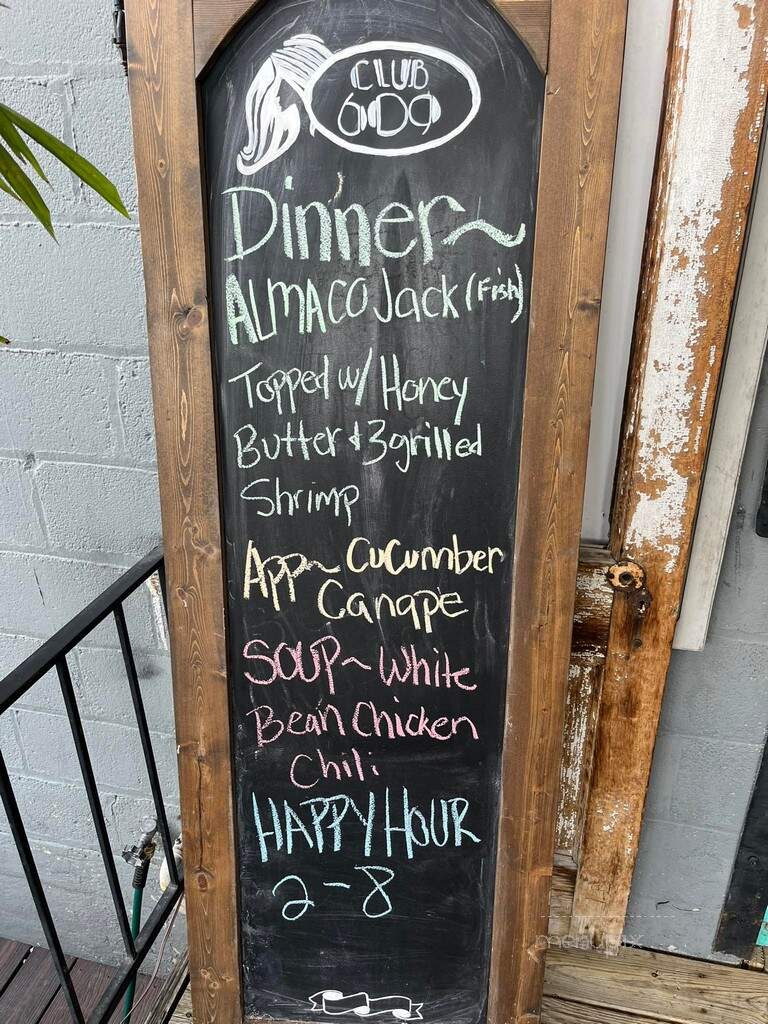 CLUB
609
Dinner~
ALMACO Jack (Fish)
Topped w/ Honey
Butter & 3 grilled
Shrimp
App~ Cucumber
Canape
SOUP~ White
Bean Chicken
Chili
HAPPY HOUR
2-8
menupix